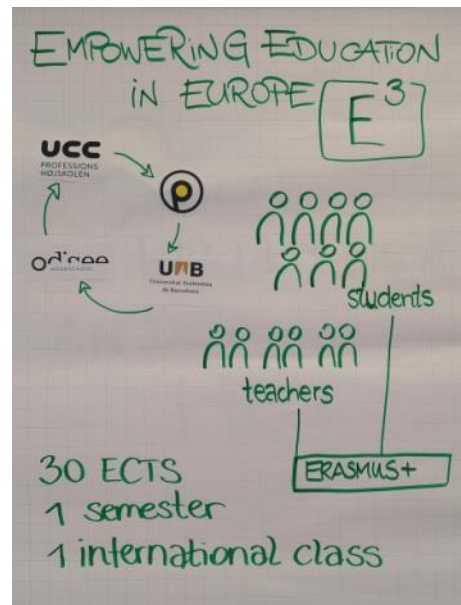 EMPOWERING EDUCATION
IN EUROPE
E³
UCC
PROFESSIONS
HØJSKOLEN
p
Odisee
HOGESCHOOL
UAB
Universitat Autònoma
de Barcelona
students
teachers
ERASMUS+
30 ECTS
1 semester
1 international class